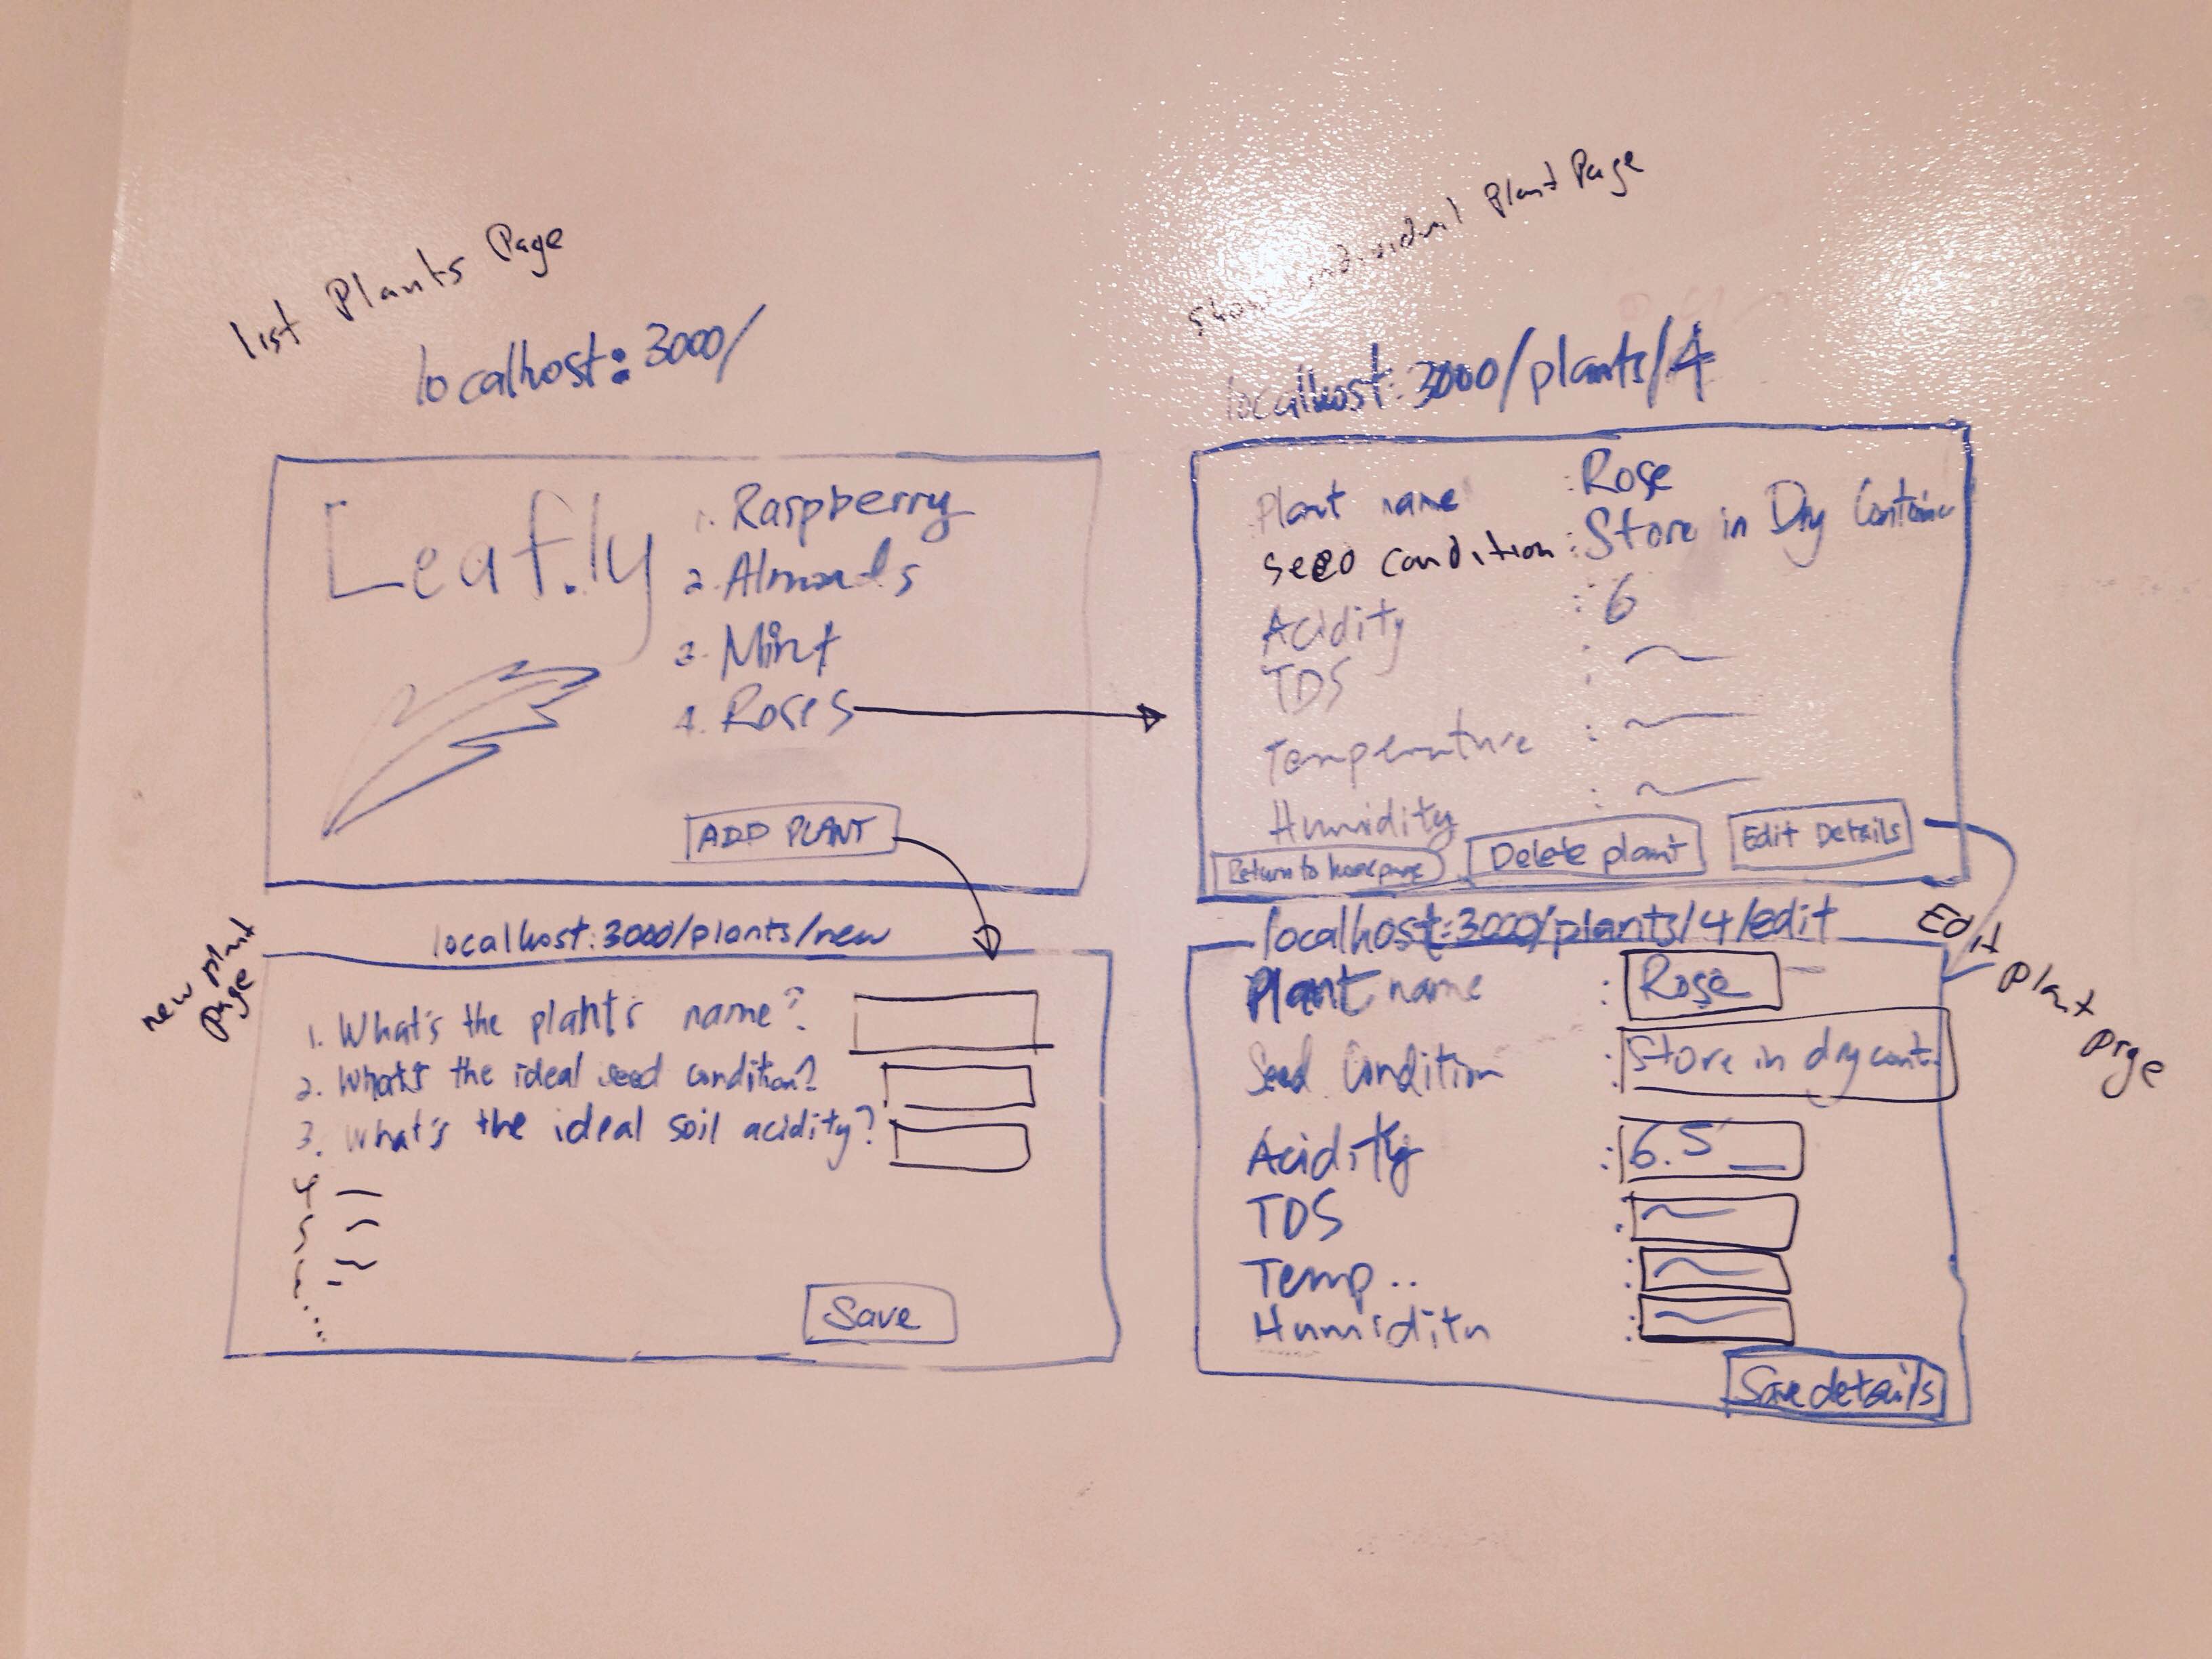 list Plants Page
localhost:3000/
Leaf.ly
1. Raspberry
2. Almonds
3. Mint
4. Roses
ADD PLANT
show individual Plant Page
localhost:3000/plants/4
Plant name : Rose
Seed condition : Store in Dry Container
Acidity : 6
TDS :
Temperature :
Humidity :
Return to homepage
Delete plant
Edit Details
new plant
Page
localhost:3000/plants/new
1. What's the plant's name?
2. What's the ideal seed condition?
3. What's the ideal soil acidity?
4
5
Save
Edit Plant Page
localhost:3000/plants/4/edit
Plant name : Rose
Seed Condition : Store in dry cont.
Acidity : 6.5
TDS :
Temp.. :
Humidity :
Save details